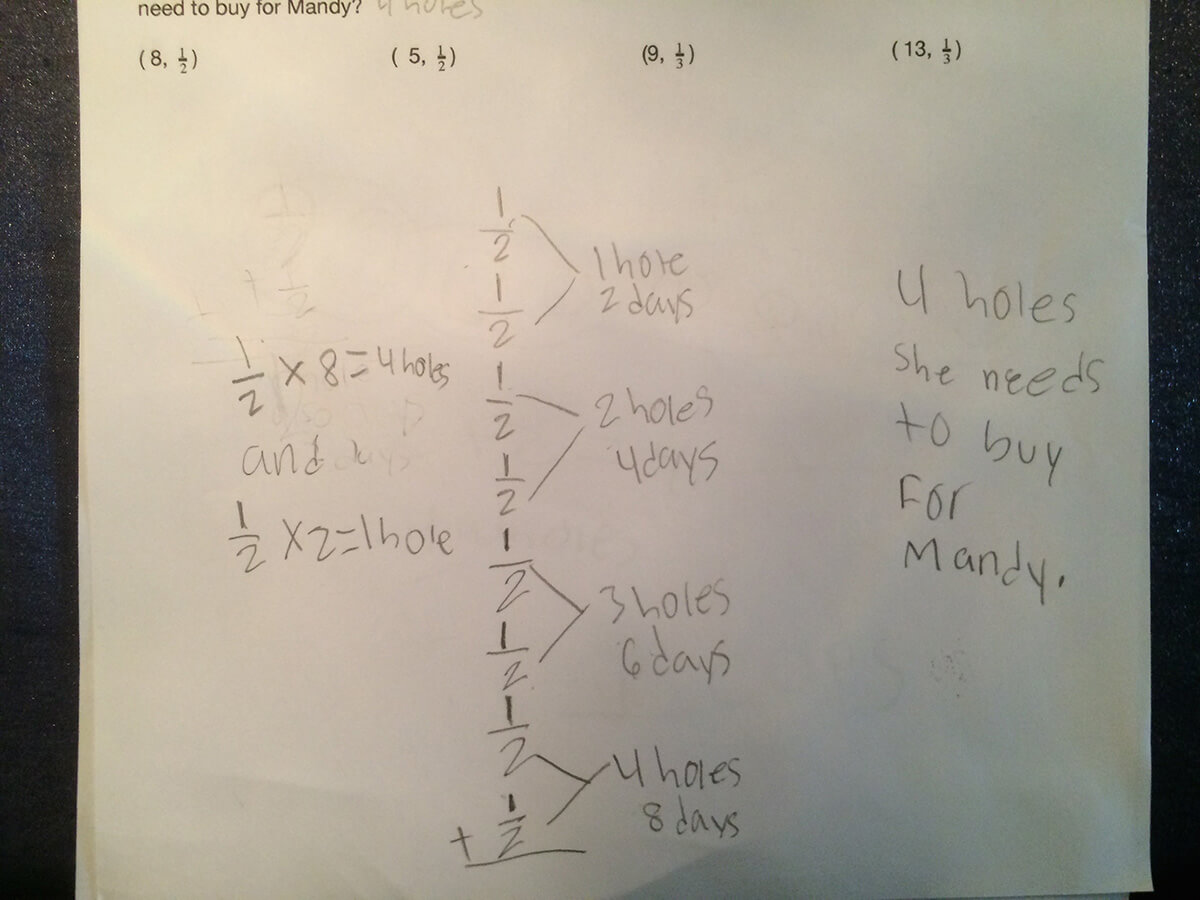 need to buy for Mandy? 4 holes
(8, 1/2) (5, 1/2) (9, 1/3) (13, 1/3)
1/2
1/2
1 hole
2 days
+ 1/2
1/2 x 8 = 4 holes
and
1/2 x 2 = 1 hole
1/2
1/2
2 holes
4 days
1/2
1/2
3 holes
6 days
1/2
+ 1/2
4 holes
8 days
4 holes
she needs
to buy
For
Mandy.